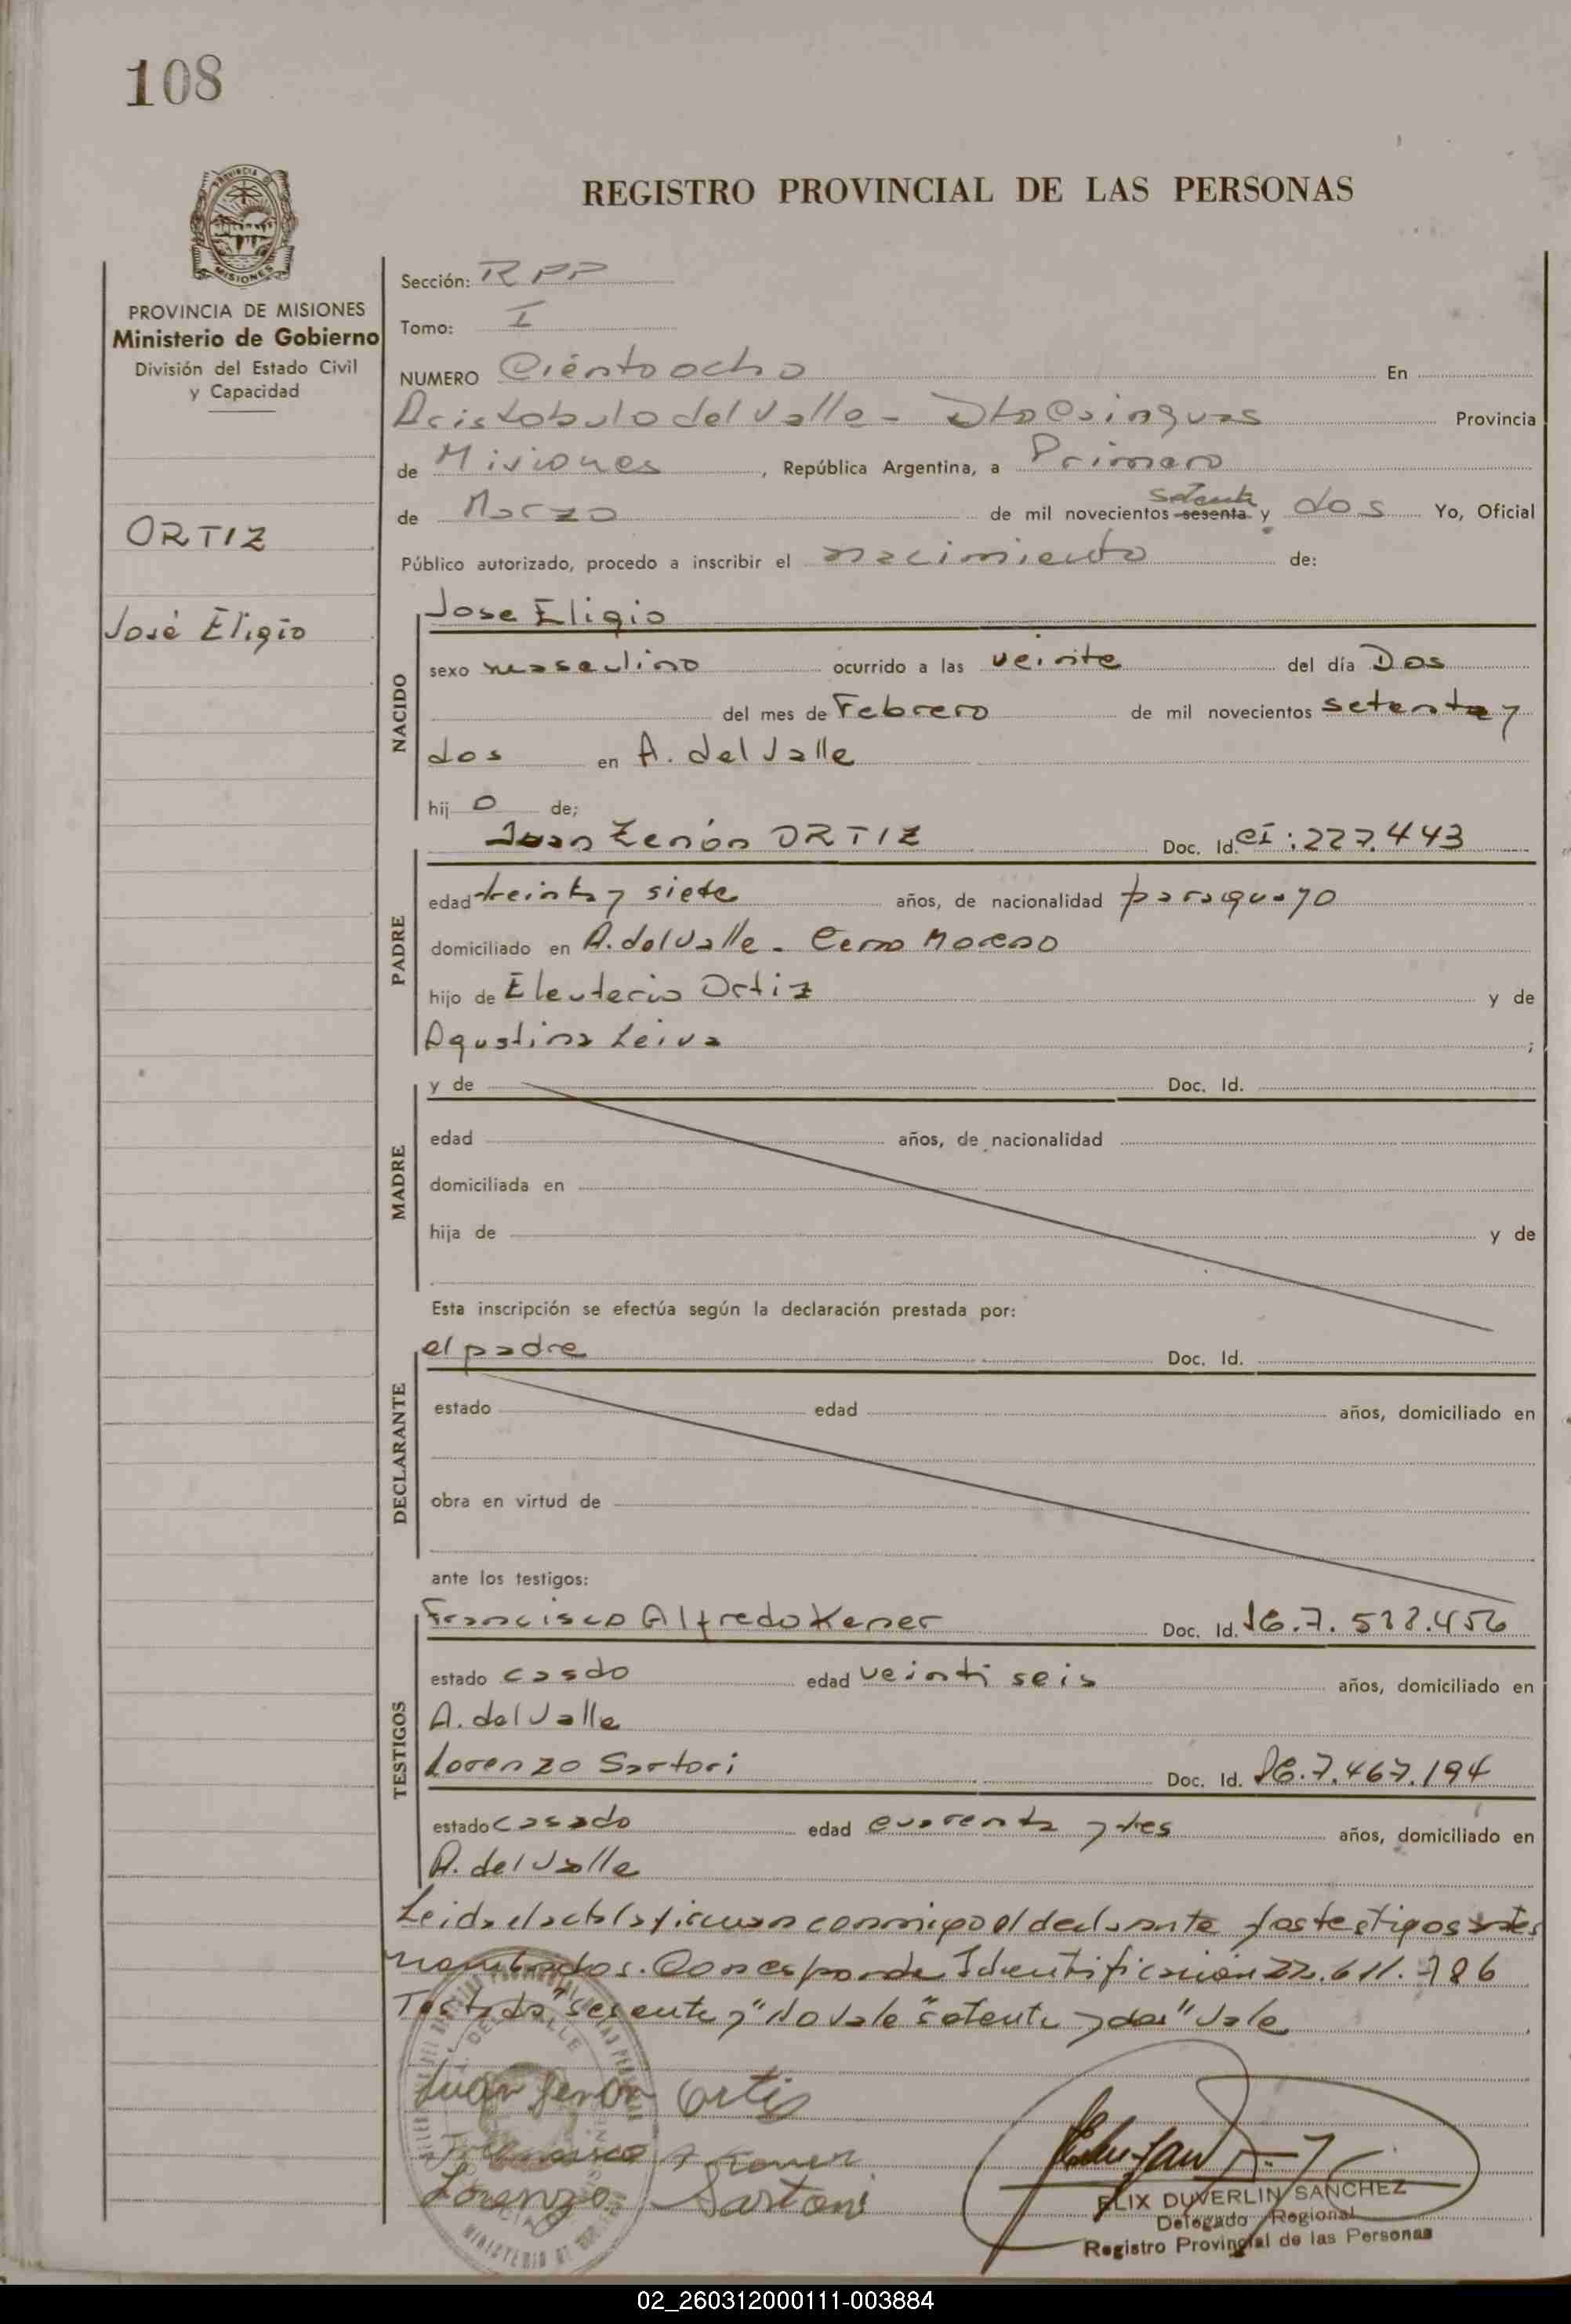 108
REGISTRO PROVINCIAL DE LAS PERSONAS
PROVINCIA DE MISIONES
Ministerio de Gobierno
División del Estado Civil
y Capacidad
ORTIZ
José Eligio
Sección: RPP
Tomo: I
NUMERO Ciento ocho En
Aristobulo del Valle - Dto Cainguas Provincia
de Misiones, República Argentina, a Primero
de Marzo de mil novecientos setenta sesenta y dos Yo, Oficial
Público autorizado, procedo a inscribir el nacimiento de:
NACIDO
Jose Eligio
sexo masculino ocurrido a las veinte del día Dos
del mes de Febrero de mil novecientos setenta y
dos en A. del Valle
hijo de;
PADRE
Juan Zenón ORTIZ Doc. Id. CI: 227.443
edad treinta y siete años, de nacionalidad paraguayo
domiciliado en A. del Valle - Cerro Moreno
hijo de Eleuterio Ortiz y de
Agustina Leiva ;
MADRE
y de Doc. Id.
edad años, de nacionalidad
domiciliada en
hija de y de
Esta inscripción se efectúa según la declaración prestada por:
DECLARANTE
el padre Doc. Id.
estado edad años, domiciliado en
obra en virtud de
ante los testigos:
TESTIGOS
Francisco Alfredo Kener Doc. Id.
estado casdo edad veinti seis años, domiciliado en
A. del Valle
Lorenzo Sartori Doc. Id. 7.467.194
estado casado edad cuarenta y tres años, domiciliado en
A. del Valle
Leida el acta la firman conmigo el declarante y los testigos antes
nombrados. Corresponde Identificacion 22.611.786
Testado "sesenta y" No vale "setenta y dos" vale
Juan Senon Ortis
Lorenzo Sartori
FELIX DUVERLIN SANCHEZ
Delegado Regional
Registro Provincial de las Personas
02_260312000111-003884